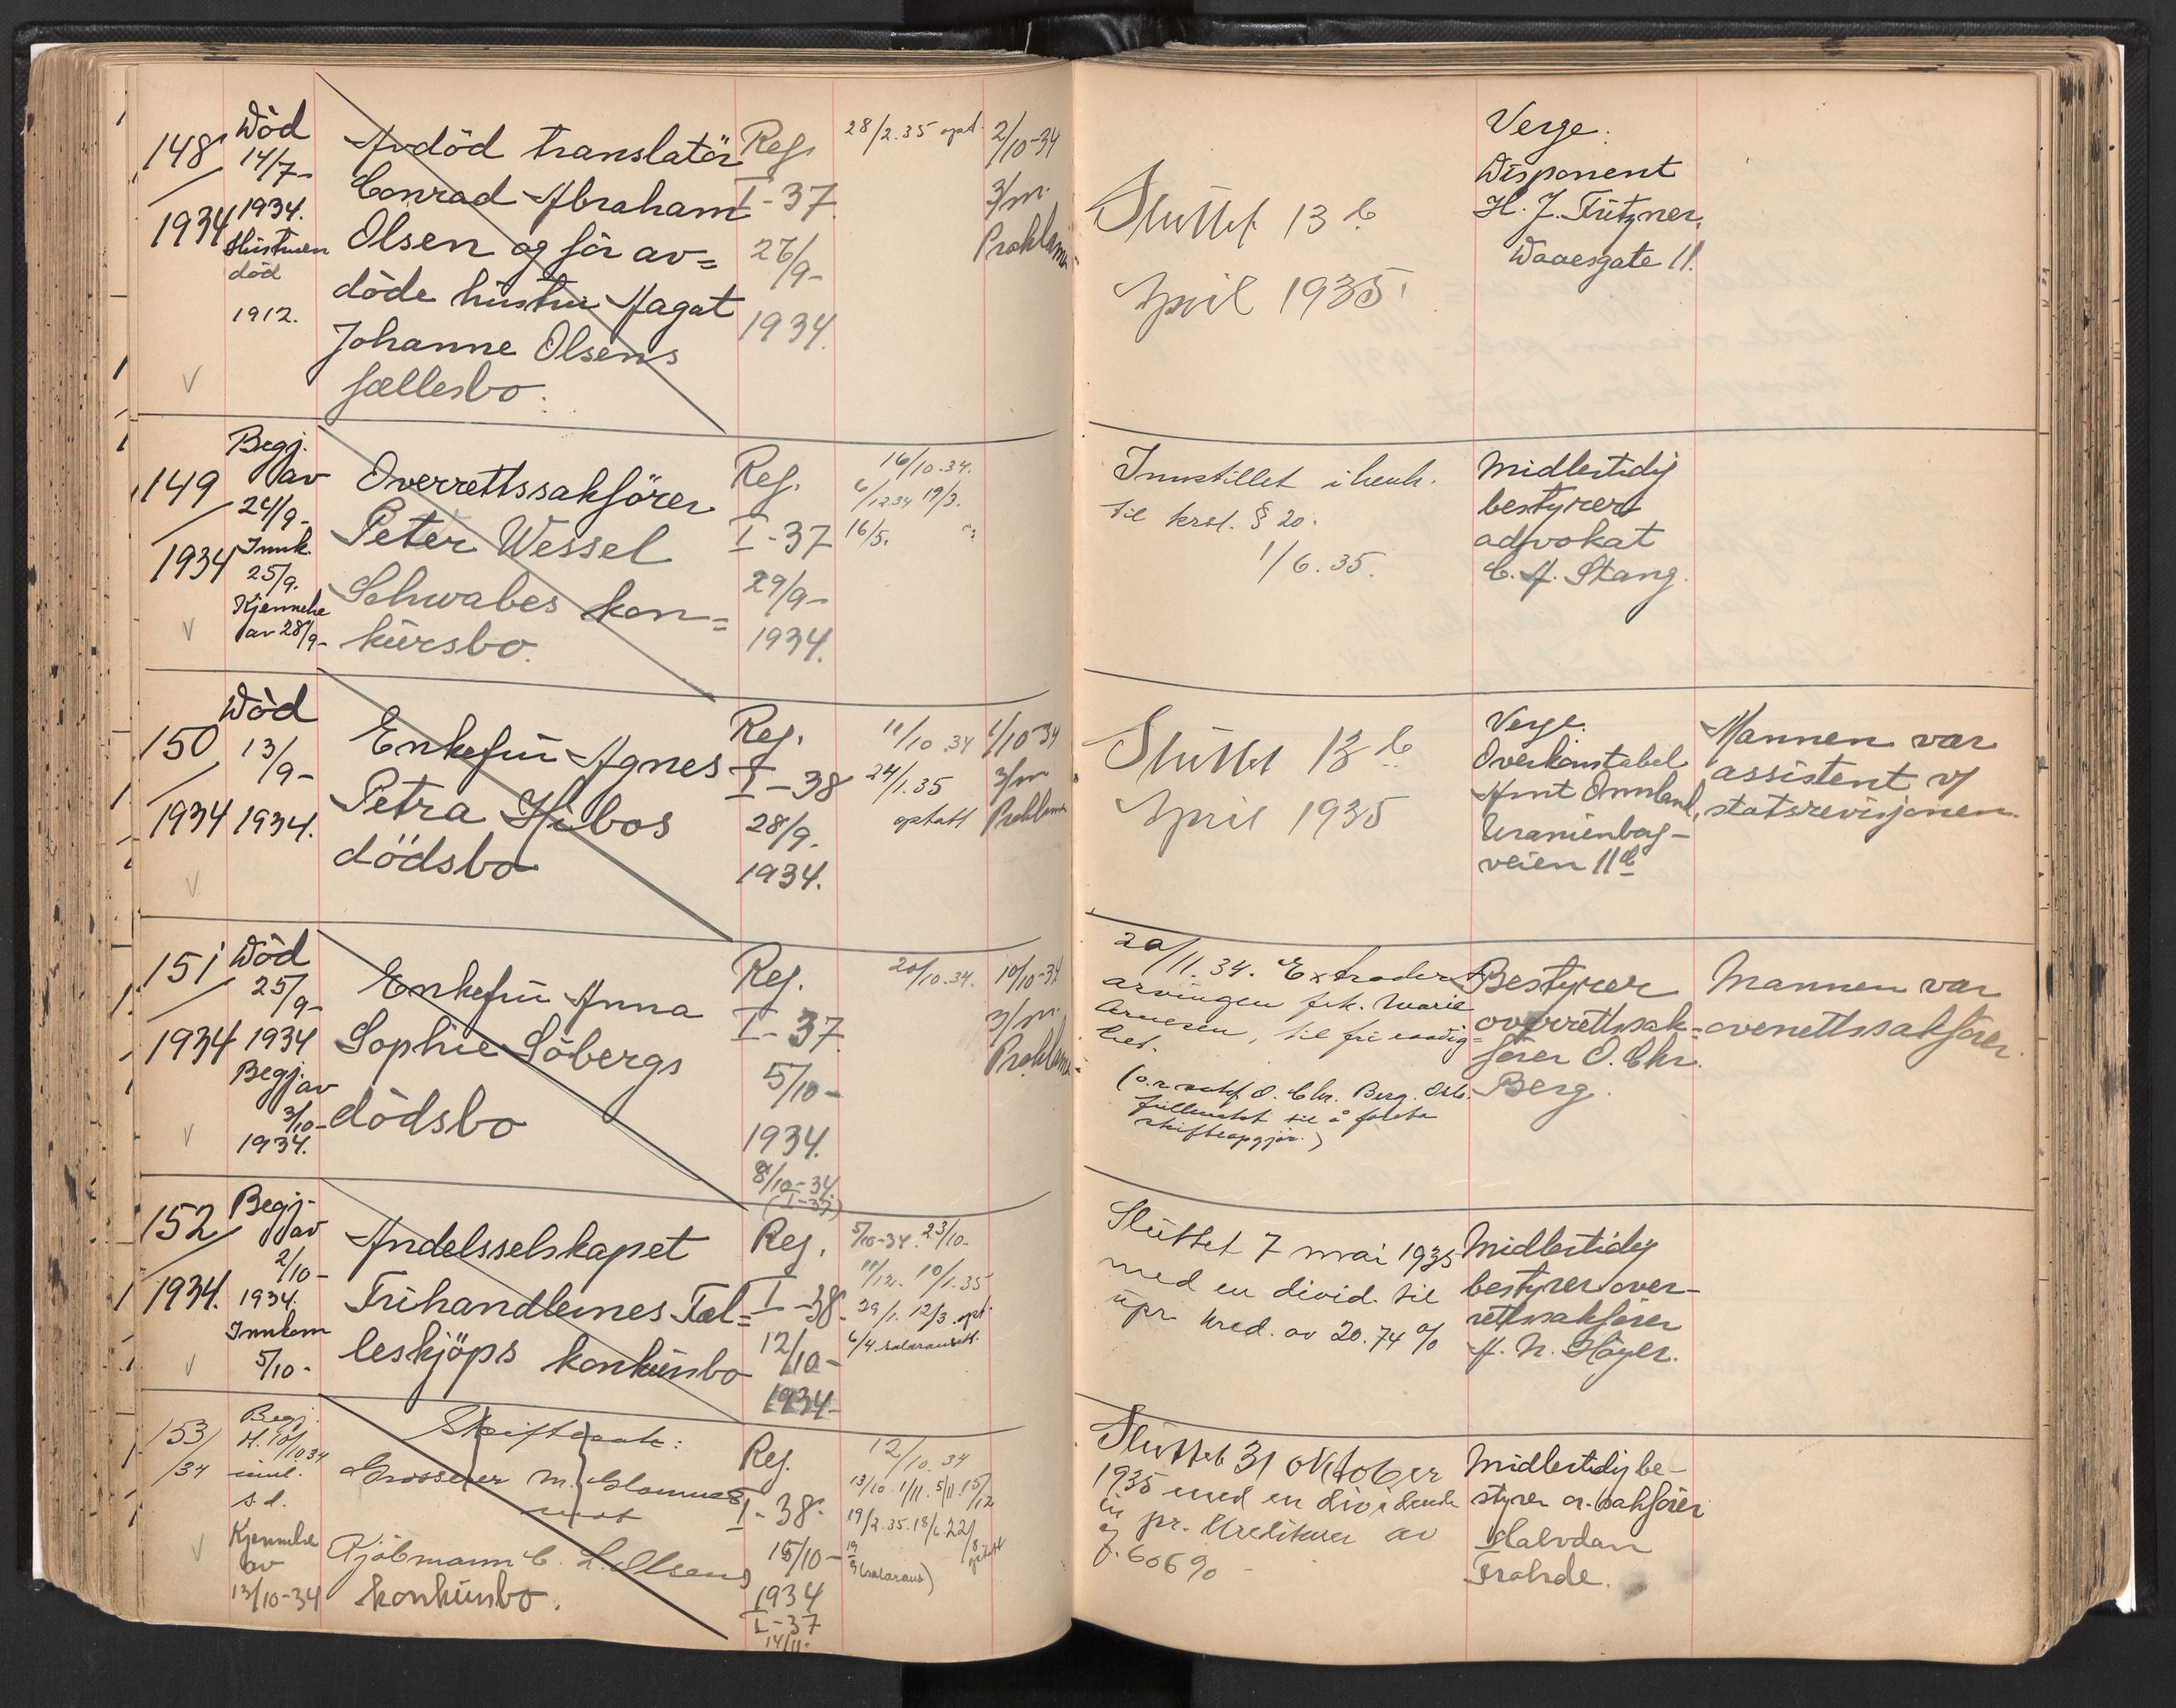 148
1934
Död
14/7-
1934.
Hustruen
död
1912.
Avdöd translatör
Conrad Abraham
Olsen og för av=
döde hustru Hagat
Johanne Olsens
fællesbo.
Reg.
I-37
26/9-
1934.
28/2.35 opt.
2/10-34
3/m.
Proklama
Sluttet 13 de
April 1935.
Verge.
Disponent
H. J. Fritzner,
Waaesgate 11.
149
1934
Begj.
av
24/9-
Innk.
25/9.
Kjennelse
av 28/9-
Overrettssakförer
Peter Wessel
Schwabes kon=
kursbo.
Reg.
I-37
29/9-
1934.
16/10.34.
6/12 34 19/3.
16/5.
Innstillet i henh.
til krsl. § 20.
1/6.35.
Midlertidig
bestyrer
advokat
C. A. Stang.
150
1934
Död
13/9-
1934.
Enkefru Agnes
Petra Hibos
dödsbo
Reg.
I-38
28/9.
1934.
11/10.34
24/1.35
optatt
1/10-34
3/m
Proklama
Sluttet 13 de
April 1935
Verge.
Overkonstabel
Amt Onnland,
Uranienborg-
veien 11b
Mannen var
assistent v/
statsrevisjonen.
151
1934
Död
25/9-
1934
Begj. av
3/10-
1934.
Enkefru Anna
Sophie Söbergs
dödsbo
Reg.
I-37
5/10-
1934.
8/10-34
(I-37)
20/10.34.
10/10-34
3/m.
Proklama
20/11.34. Extradert
arvingen frk. Marie
Arnesen, til fri raadig=
het.
(o.r.sakf. O. Chr. Berg. Oslo.
fullmakt til å foreta
skifteopgjör.)
Bestyrer
overrettssak=
förer O. Chr.
Berg.
Mannen var
overrettssakförer.
152
1934.
Begj.
av
2/10-
1934.
Innkom
5/10-
Andelsselskapet
Fruhandlernes Fel=
leskjöps konkursbo
Reg.
I-38.
12/10-
1934-
5/10-34. 23/10-
11/12. 10/1.35
29/1. 12/3. opt.
6/4. salæransett.
Sluttet 7 mai 1935
med en divid. til
upr. kred. av 20.74 %
Midlertidig
bestyrer over-
rettssakförer
A. N. Höyer.
153/
/34
Begj.
10/10 34
innl.
s.d.
Kjennelse
av
13/10-34
Skiftesak:
Grosserer M. Glommes
mot
Kjöbmann C. L. Olsens
konkursbo.
Reg.
I-38.
15/10-
1934
I-37
14/11-
12/10.34
13/10. 1/11. 5/11. 15/12
19/2.35. 18/6. 22/8
19/9 (salærans)
optatt
Sluttet 31 oktober
1935 med en dividende
til
pr. kreditorer av
7.606 %
Midlertidig be-
styrer o.r.sakförer
Halvdan
Frohde.